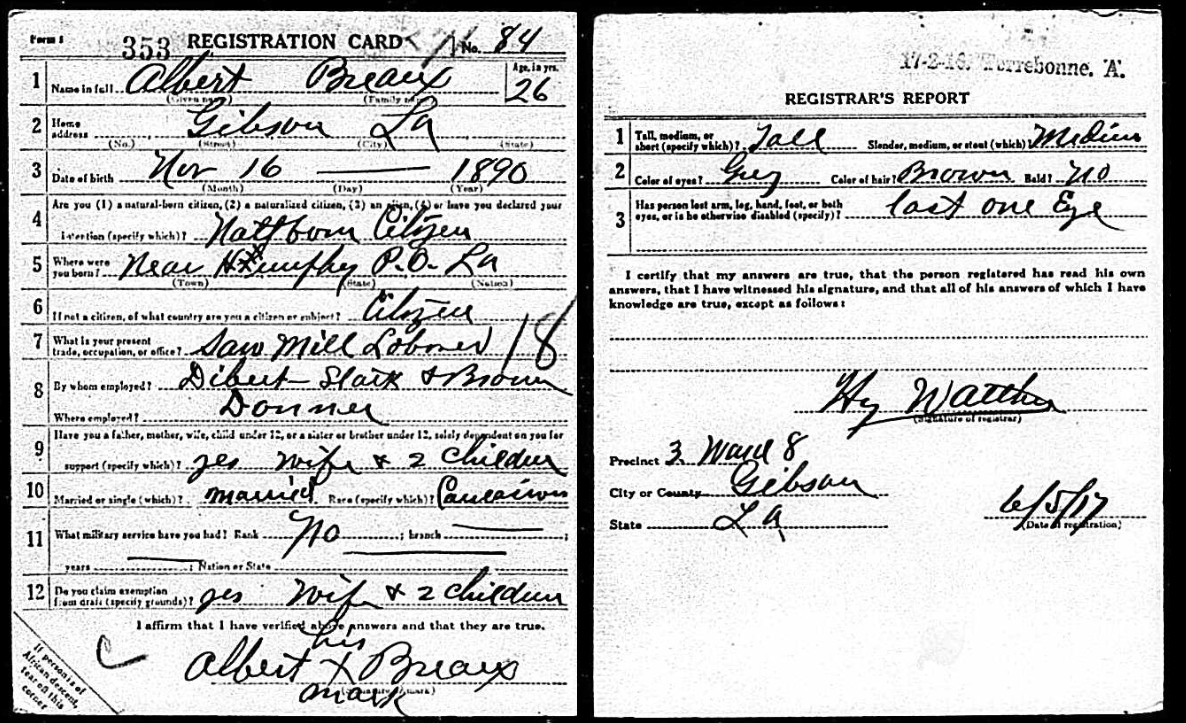 Form 1 353 REGISTRATION CARD No. 84
1 Name in full Albert Breaux Age, in yrs. 26
(Given name) (Family name)
2 Home address Gibson La
(No.) (Street) (City) (State)
3 Date of birth Nov 16 1890
(Month) (Day) (Year)
4 Are you (1) a natural-born citizen, (2) a naturalized citizen, (3) an alien, (4) or have you declared your
intention (specify which)? Natl born Citizen
5 Where were you born? Near P.O. La
(Town) (State) (Nation)
6 If not a citizen, of what country are you a citizen or subject? Citizen
7 What is your present trade, occupation, or office? Saw Mill Laborer 18
8 By whom employed? Dibert Stark & Brown
Where employed? Donner
9 Have you a father, mother, wife, child under 12, or a sister or brother under 12, solely dependent on you for
support (specify which)? yes wife & 2 children
10 Married or single (which)? married Race (specify which)? Caucasion
11 What military service have you had? Rank No ; branch ;
years ; Nation or State
12 Do you claim exemption from draft (specify grounds)? yes Wife & 2 children
I affirm that I have verified above answers and that they are true.
his
Albert X Breaux
(Signature or mark)
mark
If person is of
African descent,
tear off this
corner
17-2-16. Terrebonne. A.
REGISTRAR'S REPORT
1 Tall, medium, or short (specify which)? Tall Slender, medium, or stout (which)? Medium
2 Color of eyes? Grey Color of hair? Brown Bald? No
3 Has person lost arm, leg, hand, foot, or both
eyes, or is he otherwise disabled (specify)? lost one Eye
I certify that my answers are true, that the person registered has read his own
answers, that I have witnessed his signature, and that all of his answers of which I have
knowledge are true, except as follows:
Hy
(Signature of registrar)
Precinct 3 Ward 8
City or County Gibson
State La 6/5/17
(Date of registration)